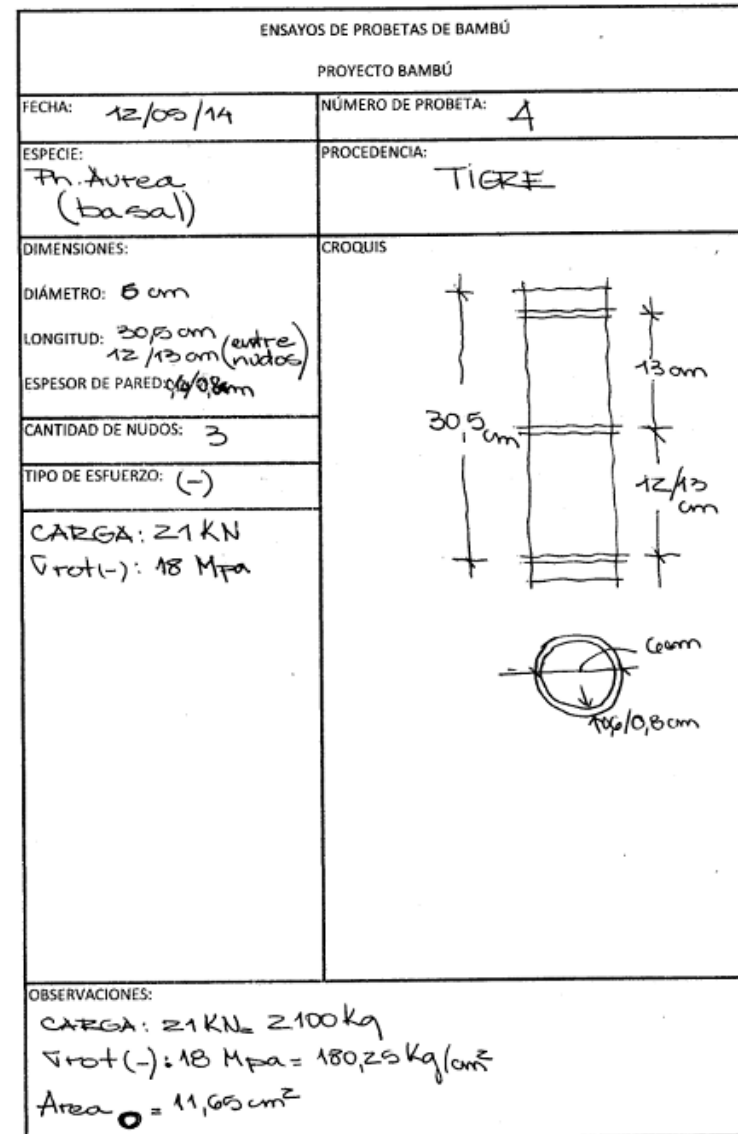 ENSAYOS DE PROBETAS DE BAMBÚ
PROYECTO BAMBÚ
FECHA: 12/05/14
NÚMERO DE PROBETA: 1
ESPECIE:
Ph. Aurea
(basal)
PROCEDENCIA:
TIGRE
DIMENSIONES:
DIÁMETRO: 6 cm
LONGITUD: 30,5 cm
12/13 cm (entre nudos)
ESPESOR DE PARED: 0,6/0,8cm
CANTIDAD DE NUDOS: 3
TIPO DE ESFUERZO: (-)
CARGA: 21 KN
σrot(-): 18 Mpa
CROQUIS
13 cm
30,5 cm
12/13
cm
6cm
0,6/0,8 cm
OBSERVACIONES:
CARGA: 21 KN = 2100 kg
σrot(-): 18 Mpa = 180,25 Kg/cm²
Area = 11,65 cm²